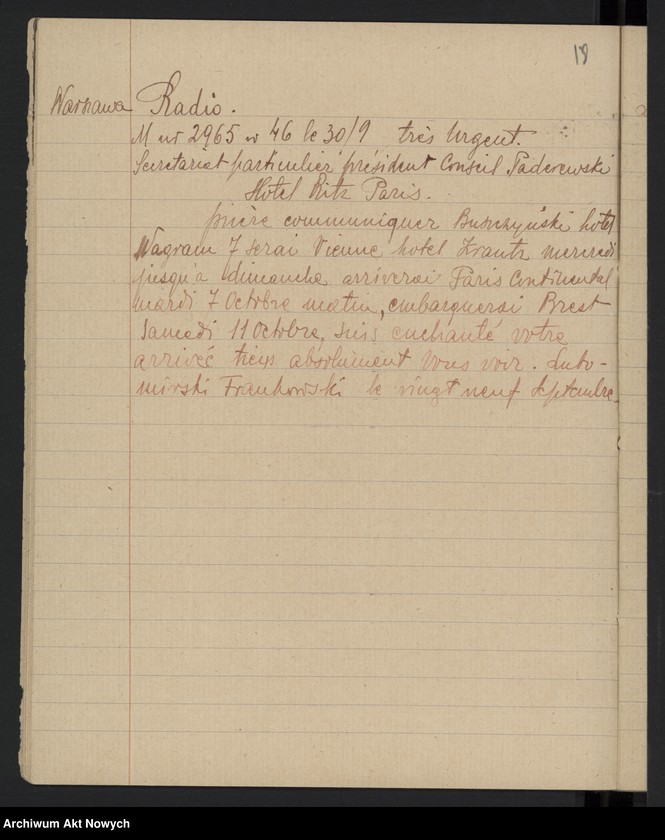 19
Warszawa Radio.
M nr 2965 w 46 le 30/9 très Urgent.
Secretariat particulier président Conseil Paderewski
Hotel Ritz Paris.
prière communiquer Buszczyński hotel
Wagram 7 serai Vienne hotel Krantz mercredi
jusqu'a dimanche arriverai Paris Continental
mardi 7 Octobre matin, embarquerai Brest
Samedi 11 Octobre, suis enchanté votre
arriveé tiens absolument vous voir. Lubo-
mirski Frankowski le vingt neuf septembre.
Archiwum Akt Nowych